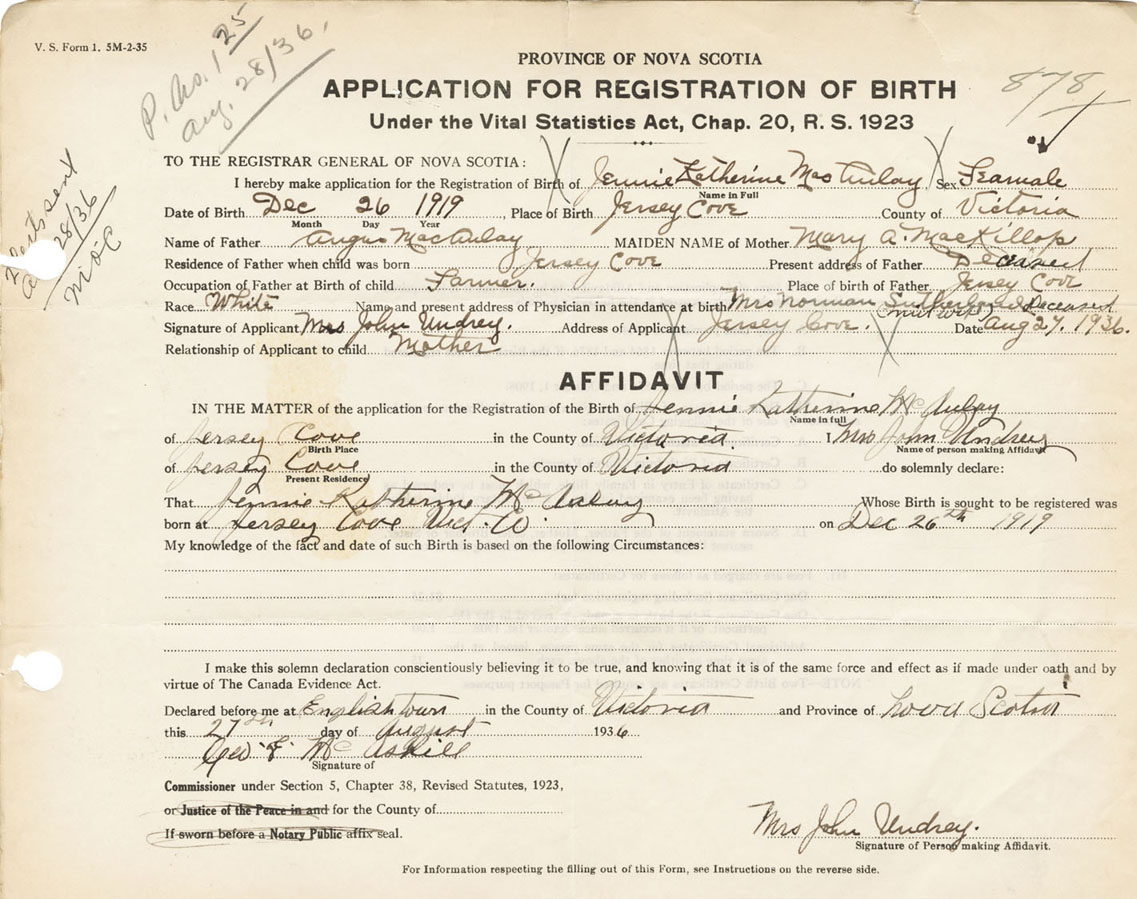 V. S. Form 1. 5M-2-35
P. No. 1 25
Aug. 28/36.
878
PROVINCE OF NOVA SCOTIA
APPLICATION FOR REGISTRATION OF BIRTH
Under the Vital Statistics Act, Chap. 20, R. S. 1923
sent
28/36
TO THE REGISTRAR GENERAL OF NOVA SCOTIA:
I hereby make application for the Registration of Birth of Jennie Katherine MacAulay Sex Feamale
Name in Full
Date of Birth Dec 26 1919, Place of Birth Jersey Cove County of Victoria
Month Day Year
Name of Father Angus MacAulay MAIDEN NAME of Mother Mary A. MacKillop
Residence of Father when child was born Jersey Cove Present address of Father Deceased
Occupation of Father at Birth of child Farmer. Place of birth of Father Jersey Cove
Race White Name and present address of Physician in attendance at birth Mrs Norman Sutherland Deceased
(mid wife)
Signature of Applicant Mrs John Undrey. Address of Applicant Jersey Cove. Date Aug 27, 1936.
Relationship of Applicant to child Mother
AFFIDAVIT
IN THE MATTER of the application for the Registration of the Birth of Jennie Katherine McAulay
Name in full
of Jersey Cove in the County of Victoria I Mrs John Undrey
Birth Place Name of person making Affidavit
of Jersey Cove in the County of Victoria do solemnly declare:
Present Residence
That Jennie Katherine McAulay Whose Birth is sought to be registered was
born at Jersey Cove Vict. Co. on Dec 26th 1919
My knowledge of the fact and date of such Birth is based on the following Circumstances:
I make this solemn declaration conscientiously believing it to be true, and knowing that it is of the same force and effect as if made under oath and by
virtue of The Canada Evidence Act.
Declared before me at Englishtown in the County of Victoria and Province of Nova Scotia
this 27th day of August 1936
Geo. F. McAskill
Signature of
Commissioner under Section 5, Chapter 38, Revised Statutes, 1923,
or Justice of the Peace in and for the County of
If sworn before a Notary Public affix seal.
Mrs John Undrey.
Signature of Person making Affidavit.
For Information respecting the filling out of this Form, see Instructions on the reverse side.